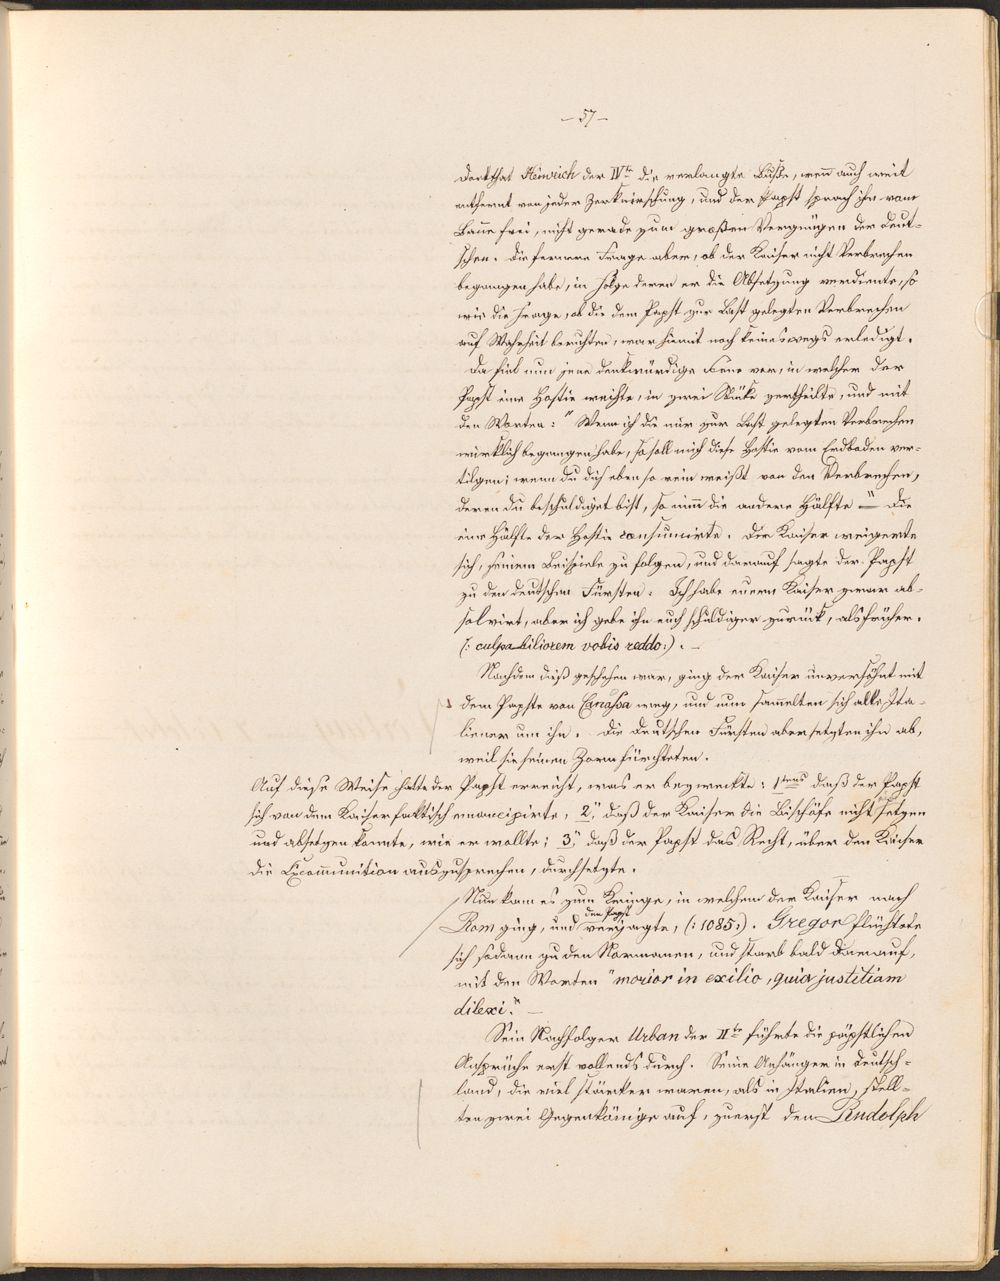 – 57 –
Dort that Heinrich der IVte die verlangte Buße, wenn auch weit
entfernt von jeder Zerknirschung, und der Papst sprach ihn vom
Banne frei, nicht gerade zum großen Vergnügen der Deut-
schen. Die fernere Frage aber, ob der Kaiser nicht Verbrechen
begangen habe, in Folge deren er die Absetzung verdiente, so
wie die Frage, ob die dem Papst zur Last gelegten Verbrechen
auf Wahrheit beruhten, war hiemit noch keineswegs erledigt.
Da fiel nun jene denkwürdige Scene vor, in welcher der
Papst eine Hostie weihte, in zwei Stücke zertheilte, und mit
den Worten: "Wenn ich die mir zur Last gelegten Verbrechen
wirklich begangen habe, so soll mich diese Hostie vom Erdboden ver-
tilgen; wenn du dich ebenso rein weißt von den Verbrechen,
deren du beschuldiget bist, so nimm die andere Hälfte" – die
eine Hälfte der Hostie consumirte. Der Kaiser weigerte
sich, seinem Beispiele zu folgen, und darauf sagte der Papst
zu den deutschen Fürsten: Ich habe euern Kaiser zwar ab-
solvirt, aber ich gebe ihn euch schuldiger zurück, als früher.
(: culpabiliorem vobis reddo:). –
Nachdem dieß geschehen war, ging der Kaiser unversöhnt mit
dem Papste von Canossa weg, und nun sammelten sich alle Ita-
liener um ihn. Die deutschen Fürsten aber setzten ihn ab,
weil sie seinen Zorn fürchteten.
Auf diese Weise hatte der Papst erreicht, was er bezweckte: 1tens daß der Papst
sich von dem Kaiser faktisch emancipirte, 2", daß der Kaiser die Bischöfe nicht setzen
und absetzen konnte, wie er wollte; 3" daß der Papst das Recht, über den Kaiser
die Excommunition auszusprechen, durchsetzte.
Nun kam es zum Kriege, in welchem der Kaiser nach
den Papst
Rom ging, und verjagte, (: 1085:). Gregor flüchtete
sich sodann zu den Normanen, und starb bald darauf,
mit den Worten "morior in exilio, quia justitiam
dilexi." –
Sein Nachfolger Urban der IIte führte die päpstlichen
Ansprüche erst vollends durch. Seine Anhänger in Deutsch-
land, die viel stärker waren, als in Italien, stell-
ten zwei Gegenkönige auf, zuerst den Rudolph